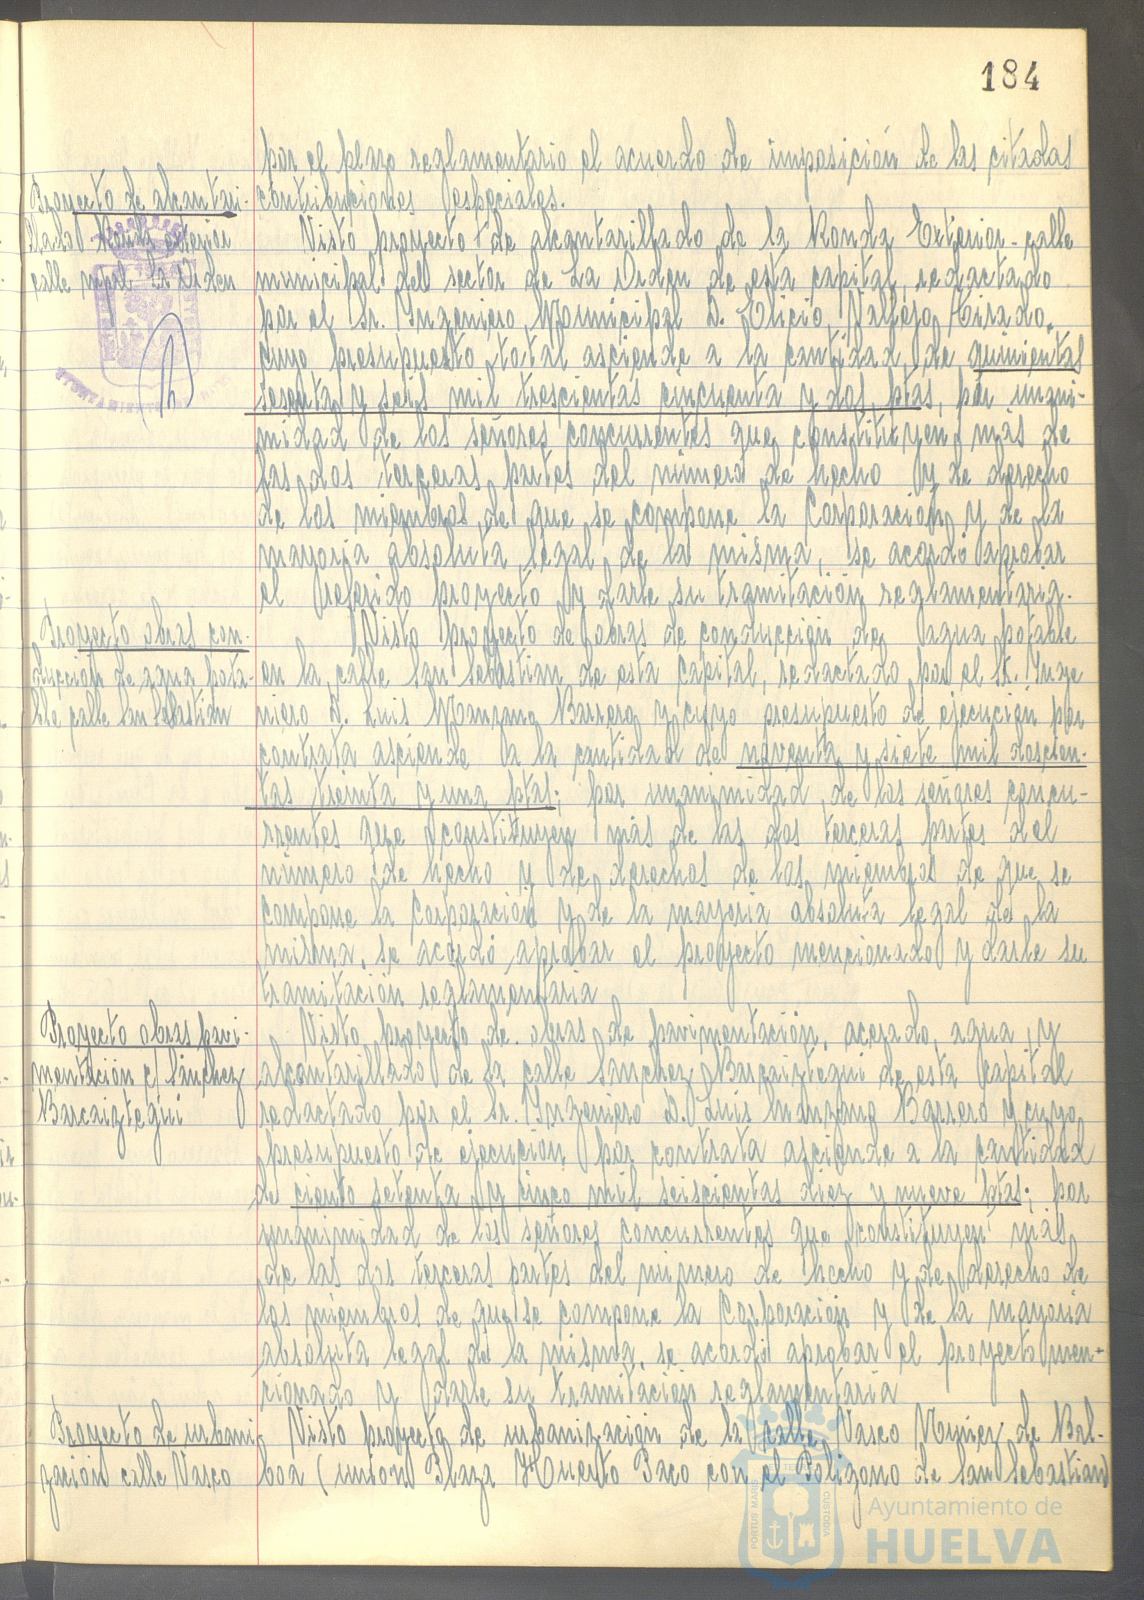 184
por el plazo reglamentario el acuerdo de imposición de las citadas
contribuciones especiales.
Proyecto de alcantari-
llado Ronda exterior
calle mpal. La Orden
Visto proyecto de alcantarillado de la Ronda Exterior - calle
municipal del sector de La Orden de esta capital, redactado
por el Sr. Ingeniero Municipal D. Elicio Vallejo Tirado,
cuyo presupuesto total asciende a la cantidad de quinientas
y seis mil trescientas cincuenta y dos ptas, por unani-
midad de los señores concurrentes que constituyen más de
las dos terceras partes del número de hecho y de derecho
de los miembros de que se compone la Corporación y de la
mayoría absoluta legal de la misma, se acordó aprobar
el referido proyecto y darle su tramitación reglamentaria.
Proyecto obras con-
ducción de agua pota-
ble calle San Sebastián
Visto proyecto de obras de conducción de agua potable
en la calle San Sebastián de esta capital, redactado por el Sr. Inge
niero D. Luis Manzano Barrero y cuyo presupuesto de ejecución por
contrata asciende a la cantidad de noventa y siete mil doscien-
tas treinta y una ptas; por unanimidad de los señores concu-
rrentes que constituyen más de las dos terceras partes del
número de hecho y de derechos de los miembros de que se
compone la Corporación y de la mayoría absoluta legal de la
misma, se acordó aprobar el proyecto mencionado y darle su
tramitación reglamentaria
Proyecto obras pavi-
mentación c/ Sánchez
Barcaiztegui
Visto proyecto de obras de pavimentación, acerado, agua, y
alcantarillado de la calle Sánchez Barcaiztegui de esta capital
redactado por el Sr. Ingeniero D. Luis Manzano Barrero y cuyo
presupuesto de ejecución por contrata asciende a la cantidad
de ciento setenta y cinco mil seiscientas diez y nueve ptas; por
unanimidad de los señores concurrentes que constituyen más
de las dos terceras partes del número de hecho y de derecho de
los miembros de que se compone la Corporación y de la mayoría
absoluta legal de la misma, se acordó aprobar el proyecto men-
cionado y darle su tramitación reglamentaria
Proyecto de urbani
zación calle Vasco
Visto proyecto de urbanización de la calle Vasco Núñez de Bal-
boa (unión Plaza Huerto Paco con el Polígono de San Sebastián
Ayuntamiento de
HUELVA